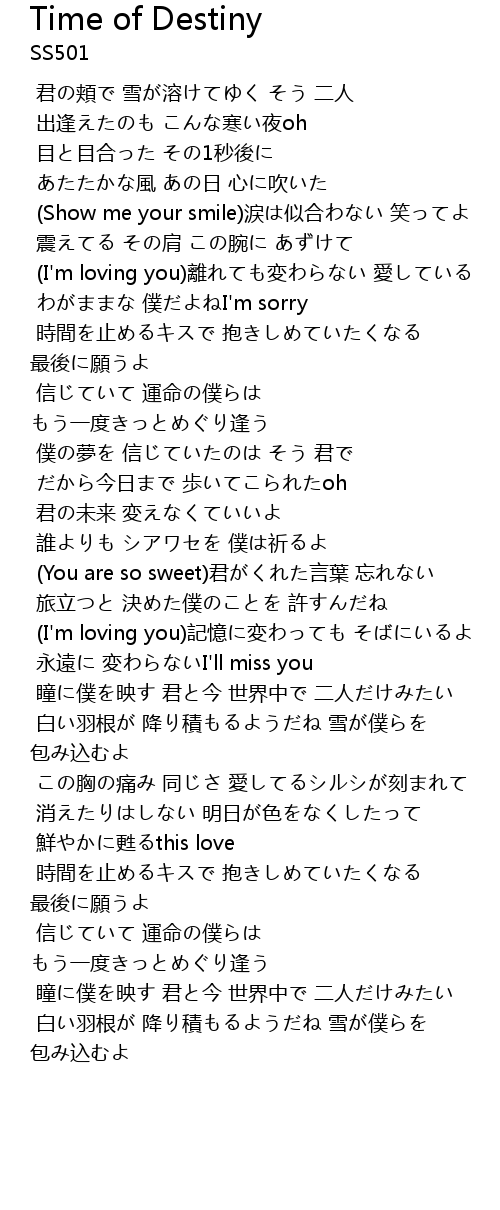 Time of Destiny
SS501
君の頬で 雪が溶けてゆく そう 二人
出逢えたのも こんな寒い夜oh
目と目合った その1秒後に
あたたかな風 あの日 心に吹いた
(Show me your smile)涙は似合わない 笑ってよ
震えてる その肩 この腕に あずけて
(I'm loving you)離れても変わらない 愛している
わがままな 僕だよねI'm sorry
時間を止めるキスで 抱きしめていたくなる
最後に願うよ
信じていて 運命の僕らは
もう一度きっとめぐり逢う
僕の夢を 信じていたのは そう 君で
だから今日まで 歩いてこられたoh
君の未来 変えなくていいよ
誰よりも シアワセを 僕は祈るよ
(You are so sweet)君がくれた言葉 忘れない
旅立つと 決めた僕のことを 許すんだね
(I'm loving you)記憶に変わっても そばにいるよ
永遠に 変わらないI'll miss you
瞳に僕を映す 君と今 世界中で 二人だけみたい
白い羽根が 降り積もるようだね 雪が僕らを
包み込むよ
この胸の痛み 同じさ 愛してるシルシが刻まれて
消えたりはしない 明日が色をなくしたって
鮮やかに甦るthis love
時間を止めるキスで 抱きしめていたくなる
最後に願うよ
信じていて 運命の僕らは
もう一度きっとめぐり逢う
瞳に僕を映す 君と今 世界中で 二人だけみたい
白い羽根が 降り積もるようだね 雪が僕らを
包み込むよ